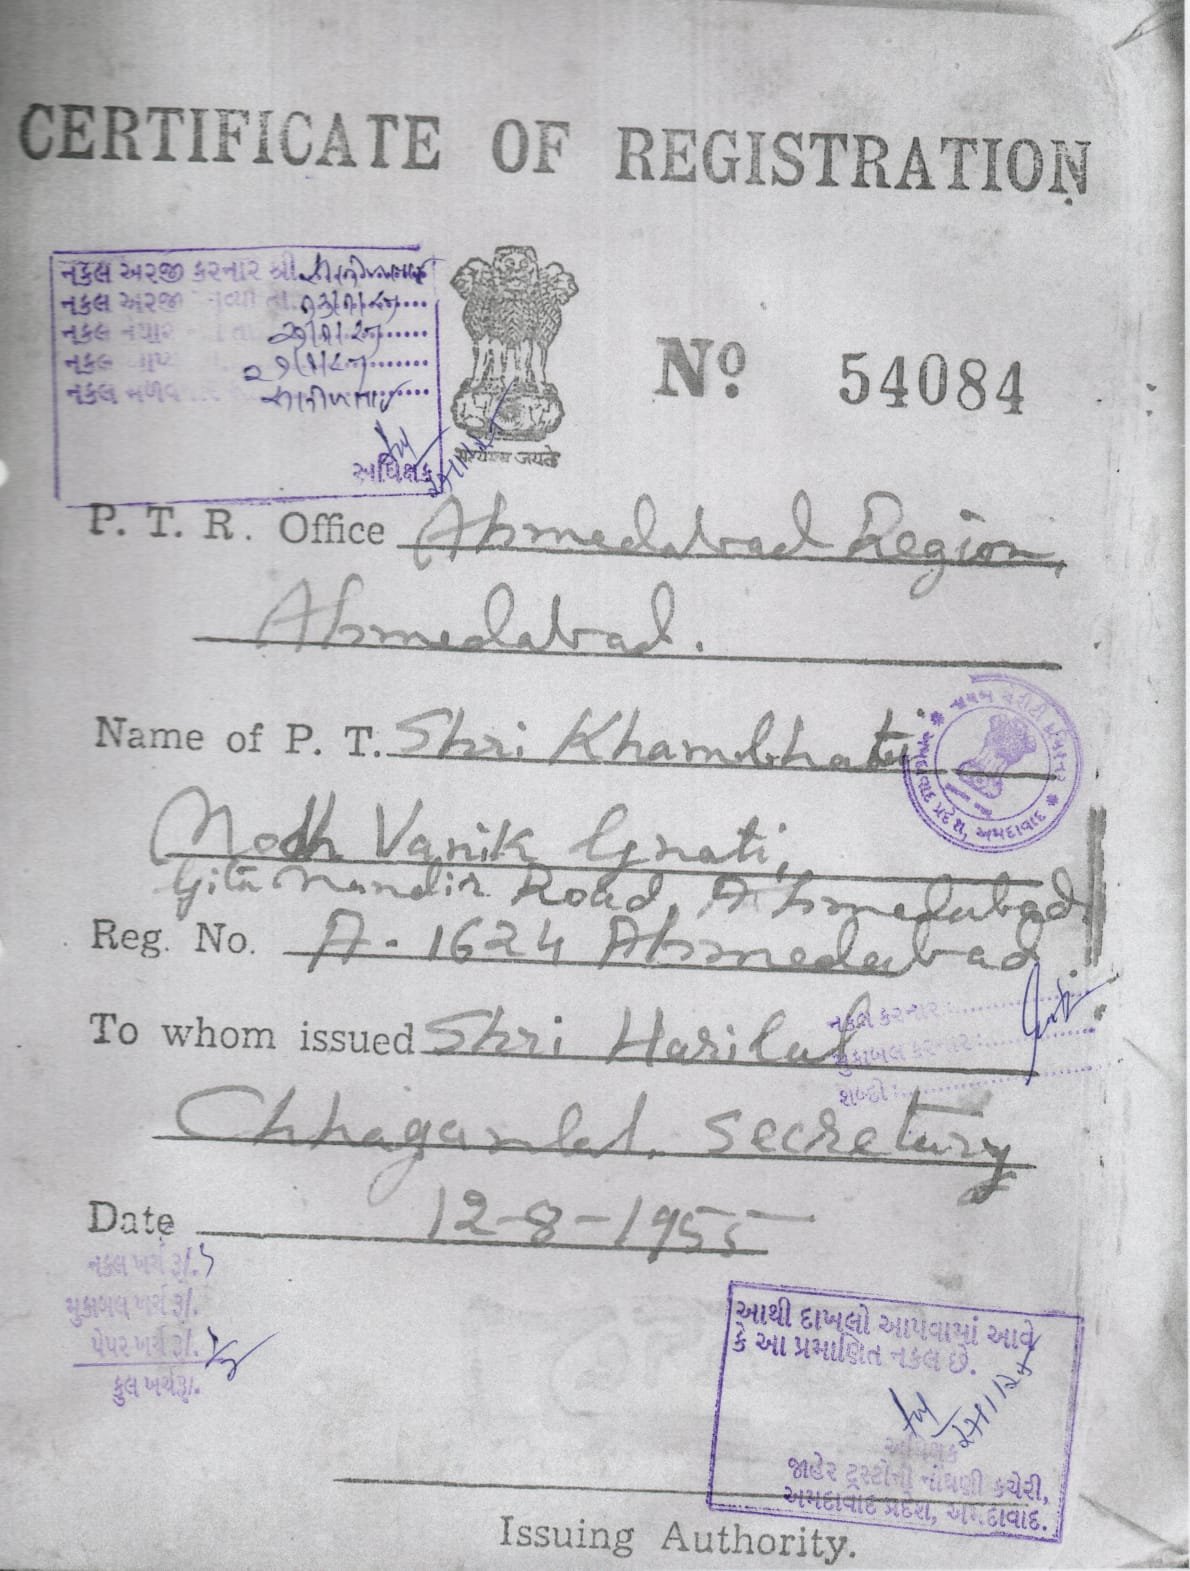 CERTIFICATE OF REGISTRATION
નકલ અરજી કરનાર શ્રી
નકલ અરજી તા.
નકલ તા.
નકલ
નકલ
અધિક્ષક
Nº 54084
જયતે
P. T. R. Office Ahmedabad Region,
Ahmedabad.
Name of P. T. Shri Khambhati
Modh Vanik Gnati,
Gita Mandir Road, Ahmedabad
Reg. No. A-1624 Ahmedabad
નકલ કરનાર :
To whom issued Shri Harilal
મુકાબલ કરનાર :
શબ્દો :
Chhaganlal, Secretary
Date 12-8-1955
નકલ ખર્ચ રૂ/.
મુકાબલ ખર્ચ રૂ/.
પેપર ખર્ચ રૂ/.
કુલ ખર્ચ રૂ/.
આથી દાખલો આપવામાં આવે
કે આ પ્રમાણિત નકલ છે.
અધિક્ષક
જાહેર ટ્રસ્ટોની નોંધણી કચેરી,
અમદાવાદ પ્રદેશ, અમદાવાદ.
Issuing Authority.